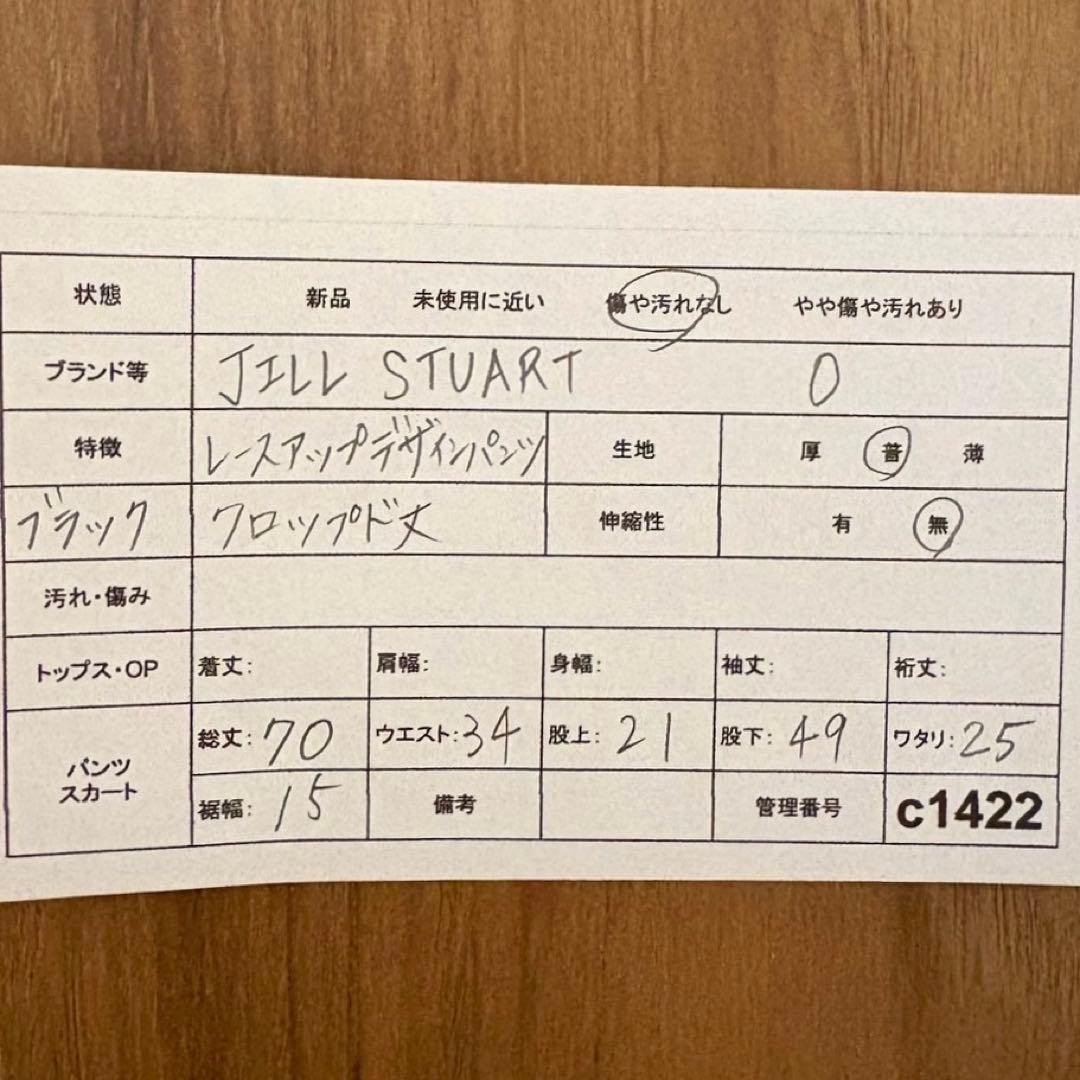 状態 新品 未使用に近い 傷や汚れなし やや傷や汚れあり
ブランド等 JILL STUART 0
特徴 レースアップデザインパンツ 生地 厚 普 薄
ブラック クロップド丈 伸縮性 有 無
汚れ・傷み
トップス・OP 着丈: 肩幅: 身幅: 袖丈: 裄丈:
パンツ スカート 総丈: 70 ウエスト: 34 股上: 21 股下: 49 ワタリ: 25
裾幅: 15 備考 管理番号 c1422